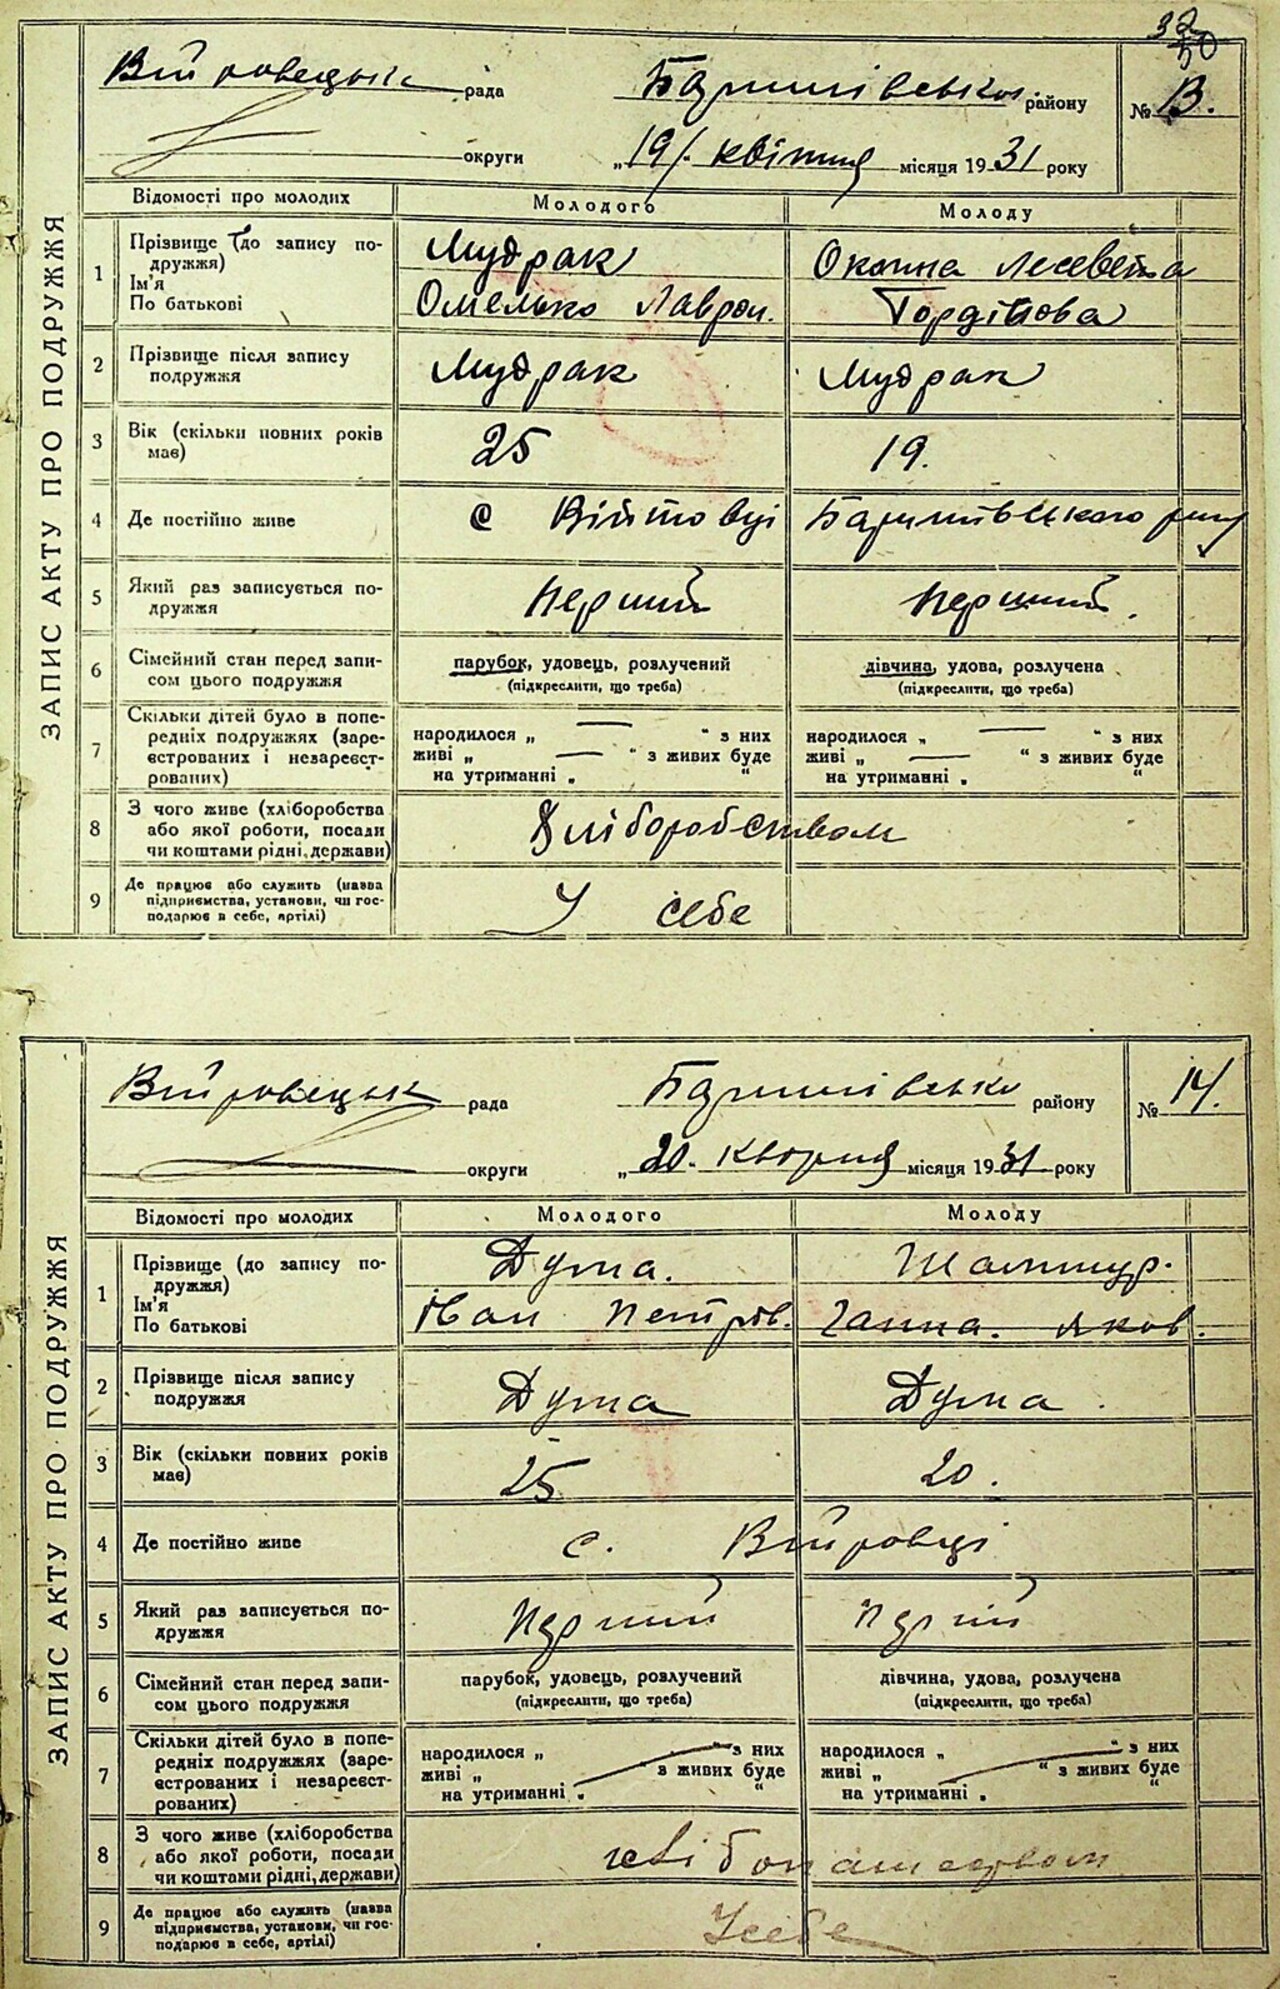 32
50
рада Баришівськ. району № 13.
округи „19/. квітня місяця 1931 року
ЗАПИС АКТУ ПРО ПОДРУЖЖЯ
Відомості про молодих Молодого Молоду
1 Прізвище (до запису по-
дружжя)
Ім'я
По батькові
Мудрак
Омелько Лаврон.
Оксана Лесевета
Гордіїова
2 Прізвище після запису
подружжя
Мудрак Мудрак
3 Вік (скільки повних років
має)
25 19.
4 Де постійно живе с Війтовці Баришівського р-ну
5 Який раз записується по-
дружжя
Перший Перший.
6 Сімейний стан перед запи-
сом цього подружжя
парубок, удовець, розлучений
(підкреслити, що треба)
дівчина, удова, розлучена
(підкреслити, що треба)
7 Скільки дітей було в попе-
редніх подружжях (заре-
єстрованих і незареєст-
рованих)
народилося „ — “ з них
живі „ — “ з живих буде
на утриманні „ “
народилося „ — “ з них
живі „ — “ з живих буде
на утриманні „ “
8 З чого живе (хліборобства
або якої роботи, посади
чи коштами рідні, держави)
Хліборобством
9 Де працює або служить (назва
підприємства, установи, чи гос-
подарює в себе, артілі)
У себе
рада Баришівсько району № 14.
округи „20. місяця 1931 року
ЗАПИС АКТУ ПРО ПОДРУЖЖЯ
Відомості про молодих Молодого Молоду
1 Прізвище (до запису по-
дружжя)
Ім'я
По батькові
Дума.
Іван Петров.
Ганна. Яков.
2 Прізвище після запису
подружжя
Дума Дума.
3 Вік (скільки повних років
має)
25 20.
4 Де постійно живе с.
5 Який раз записується по-
дружжя
Перший
6 Сімейний стан перед запи-
сом цього подружжя
парубок, удовець, розлучений
(підкреслити, що треба)
дівчина, удова, розлучена
(підкреслити, що треба)
7 Скільки дітей було в попе-
редніх подружжях (заре-
єстрованих і незареєст-
рованих)
народилося „ “ з них
живі „ “ з живих буде
на утриманні „ “
народилося „ “ з них
живі „ “ з живих буде
на утриманні „ “
8 З чого живе (хліборобства
або якої роботи, посади
чи коштами рідні, держави)
9 Де працює або служить (назва
підприємства, установи, чи гос-
подарює в себе, артілі)
У себе